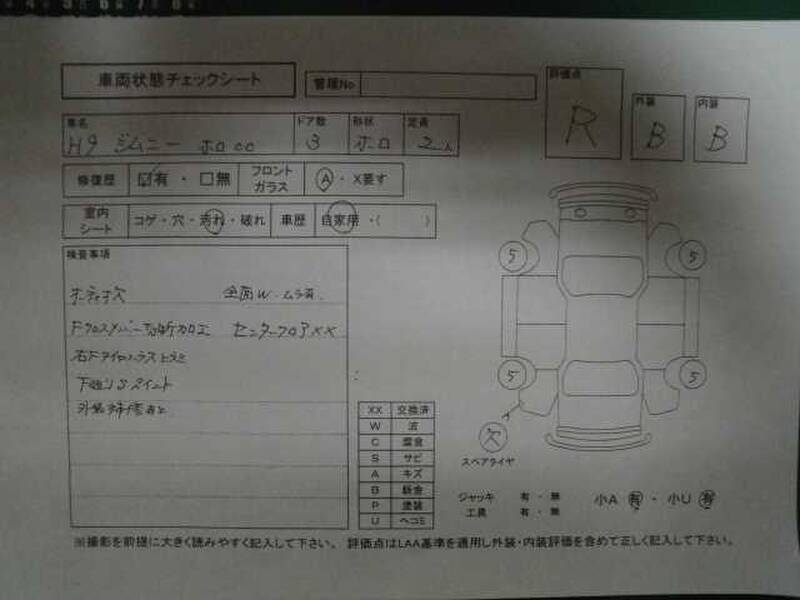 車両状態チェックシート
管理No
評価点
R
外装
B
内装
B
車名
H9 ジムニー ホロcc
ドア数
3
形状
ホロ
定員
2人
修復歴
☑有・□無
フロントガラス
A・X要す
室内シート
コゲ・穴・汚れ・破れ
車歴
自家用・( )
検査事項
全面W・ムラ有.
Fクロスメンバー切断加工 センターフロアXX
下廻りSペイント
外装補修あと
XX 交換済
W 波
C 腐食
S サビ
A キズ
B 鈑金
P 塗装
U ヘコミ
5
5
5
5
欠
スペアタイヤ
ジャッキ 有・無
工具 有・無
小A 有・小U 有
※撮影を前提に大きく読みやすく記入して下さい。 評価点はLAA基準を適用し外装・内装評価を含めて正しく記入して下さい。